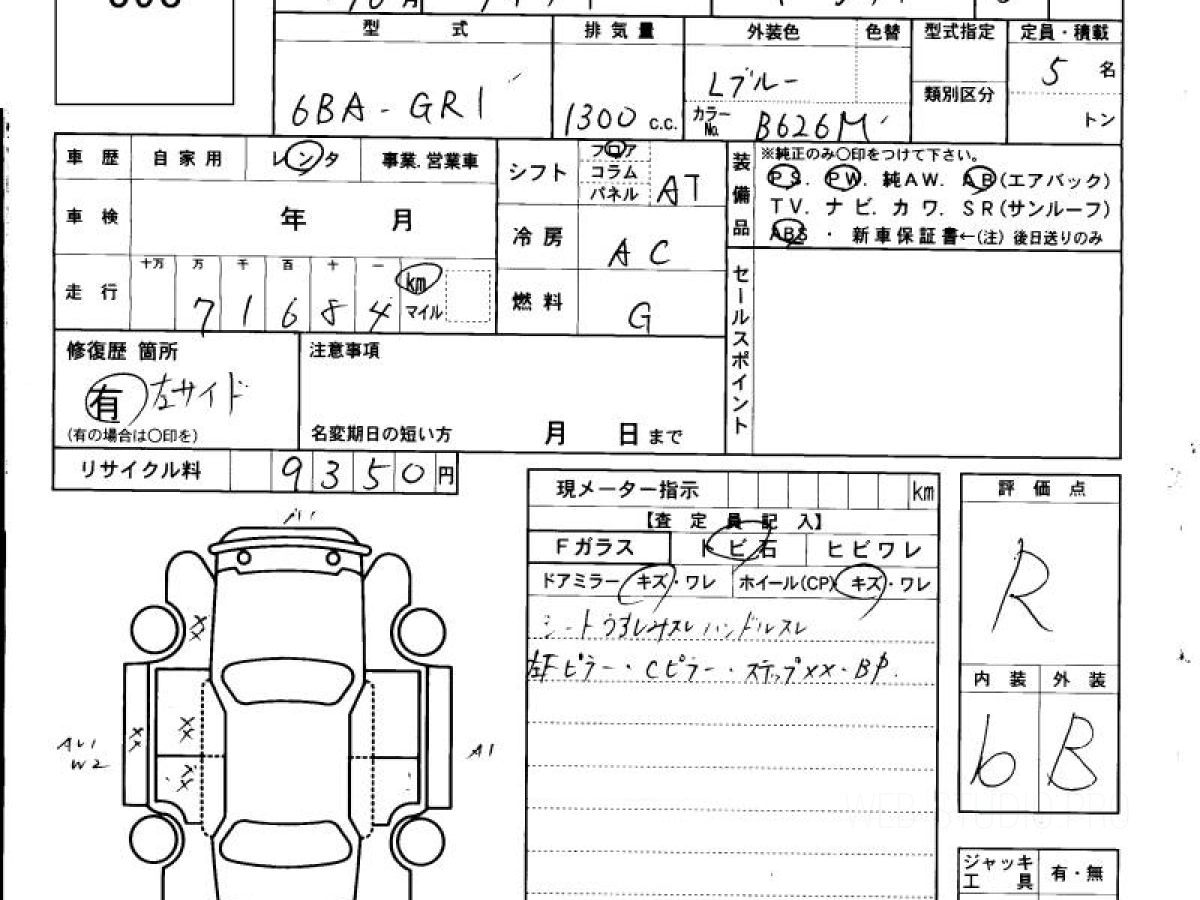 型 式 排気量 外装色 色替 型式指定 定員・積載
6BA - GR1 1300 c.c. Lブルー 5 名
類別区分
カラーNo. B626M トン
車歴 自家用 レンタ 事業.営業車 シフト フロア コラム パネル AT
車検 年 月 冷房 AC
走行 十万 万 千 百 十 一
7 1 6 8 4 km マイル 燃料 G
装備品 ※純正のみ○印をつけて下さい。
PS. PW. 純AW. AB(エアバック)
TV. ナビ. カワ. SR(サンルーフ)
ABS ・ 新車保証書←(注) 後日送りのみ
セールスポイント
修復歴 箇所 注意事項
有 左サイド
(有の場合は○印を) 名変期日の短い方 月 日まで
リサイクル料 9 3 5 0 円
現メーター指示 km 評価点
【査定員記入】
Fガラス トビ石 ヒビワレ
ドアミラー キズ・ワレ ホイール(CP) キズ・ワレ R
シートうすしみスレ ハンドルスレ
左Fピラー・Cピラー・ステップXX・BP.
内装 外装
b B
XX
XX
XX
XX
AU1
W2
A1
WEB STUDIO PRO
ジャッキ
工具 有・無